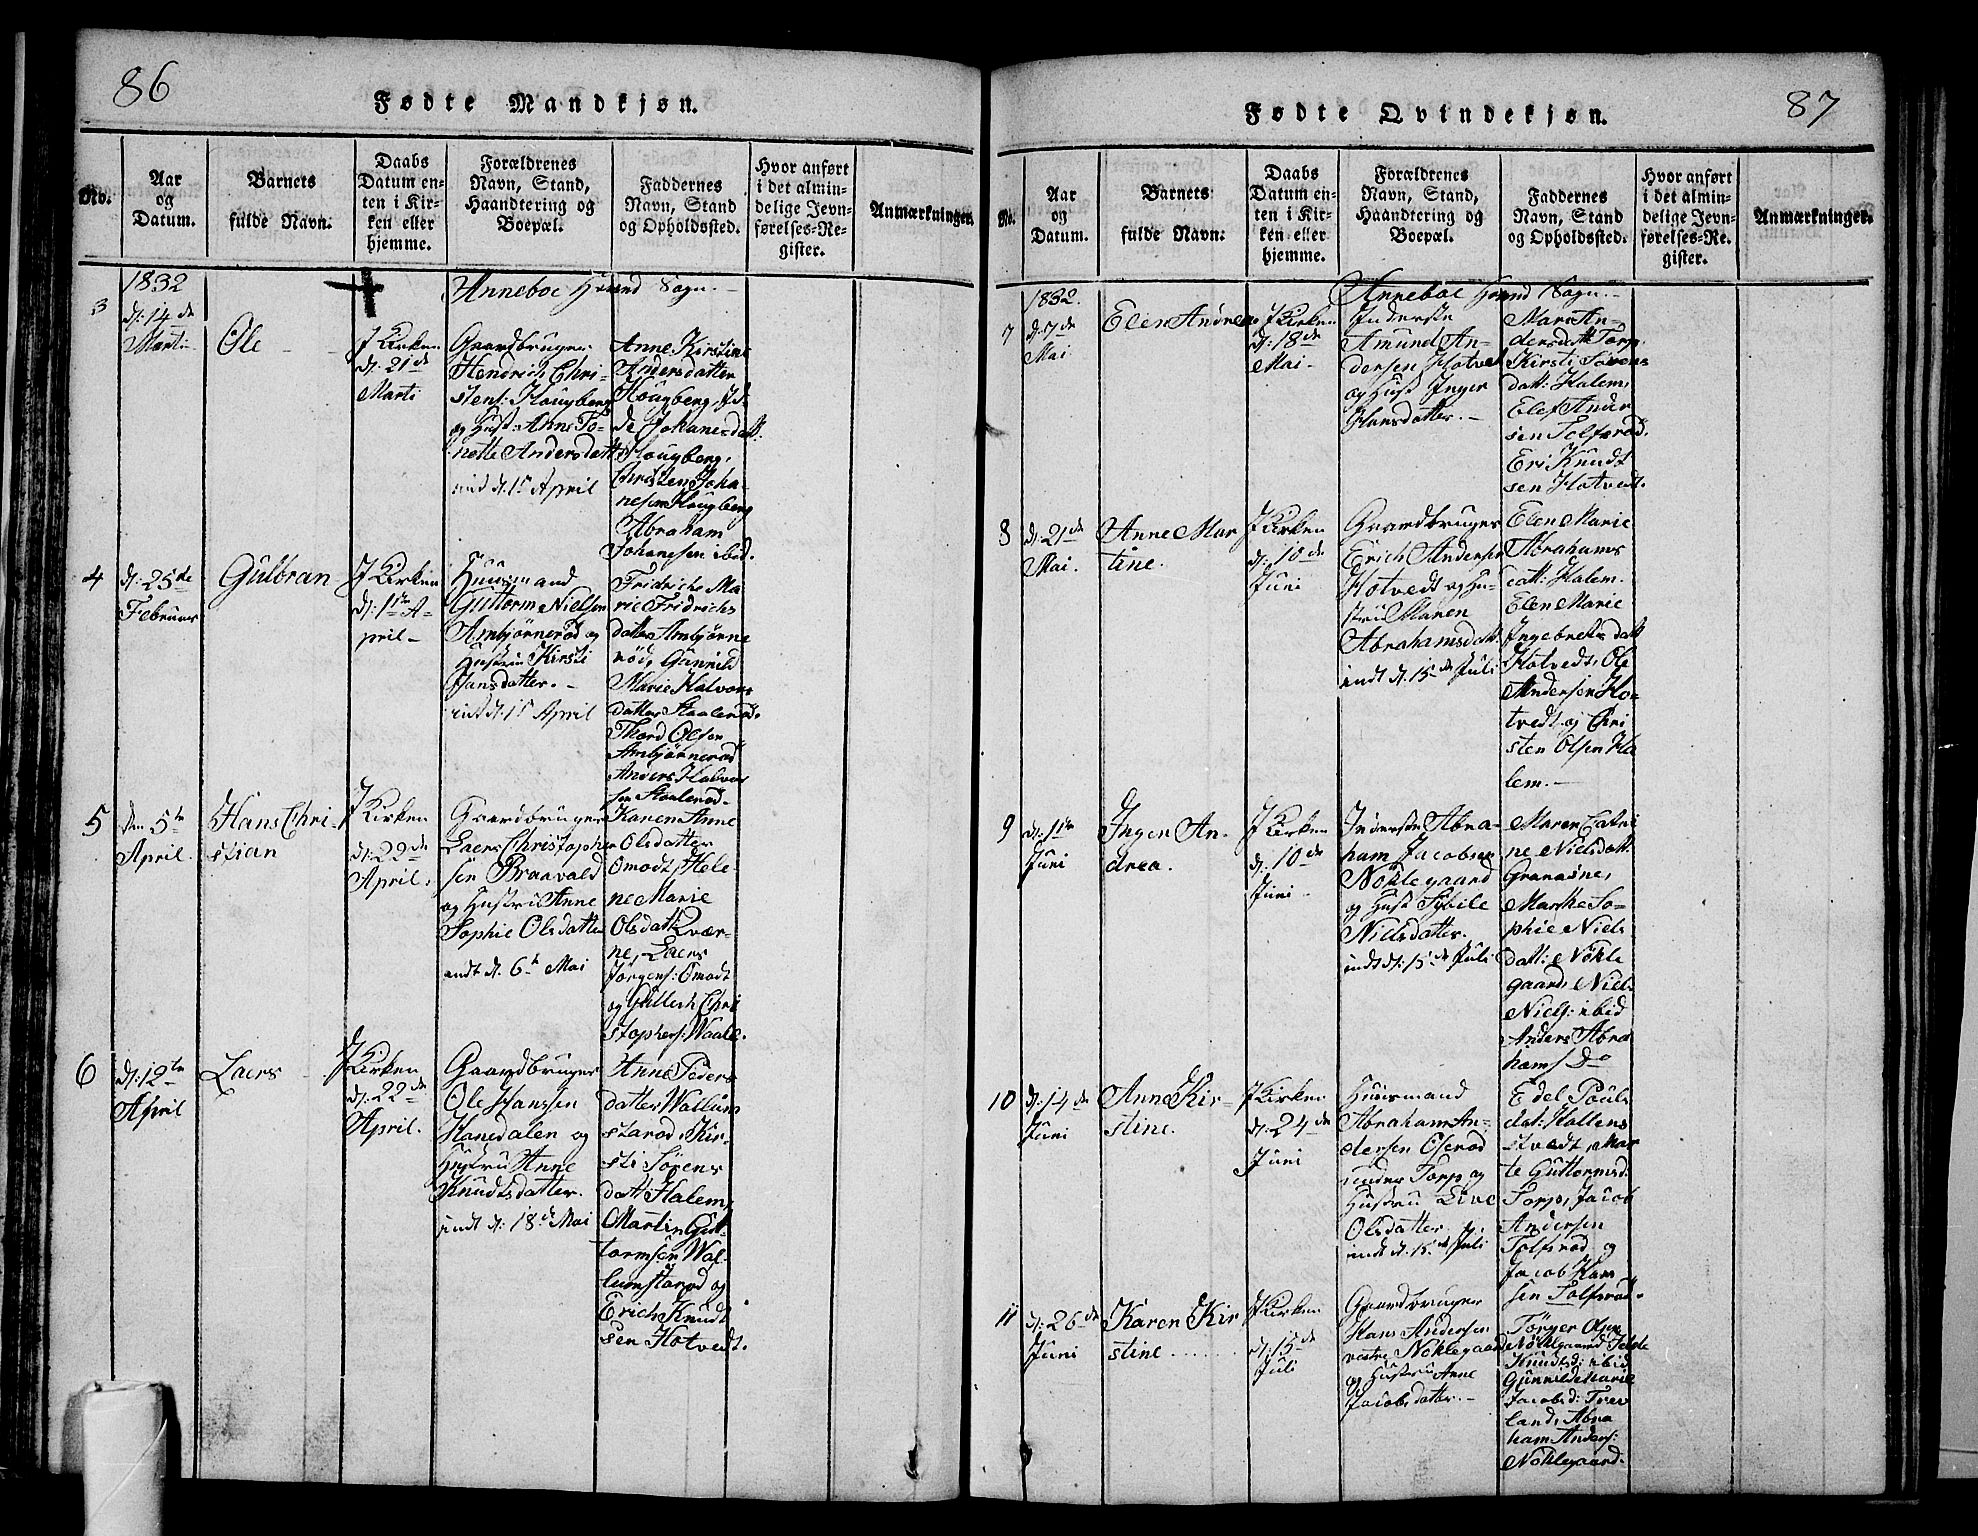 86
Fødte Mandkjøn.
No.
Aar
og
Datum.
Barnets
fulde Navn.
Daabs
Datum en-
ten i Kir-
ken eller
hjemme.
Forældrenes
Navn, Stand,
Haandtering og
Boepæl.
Faddernes
Navn, Stand
og Opholdssted.
Hvor anført
i det almin-
delige Jevn-
førelses-Re-
gister.
Anmærkninger.
Anneboe Sogn.
3
1832
d: 14de
Marti
Ole
I Kirken
d: 21de
Marti
Gaardbruger
Hendrich Chri-
stens: Hougberg
og Hust: Anne To-
nette Andersdatt:
indt d. 1st April
Anne Kirstine
Andersdatter
Hougberg,
Johanesdatt:
Hougberg,
Christen Joha-
nesen Hougberg
Abraham
Johanesen ibid.
4
d: 25de
Februar
Gulbran
I Kirken
d: 1ste A-
pril
Huusmand
Guttorm Nielsen
Ambjørnerød og
Hustru Kirsti
Hansdatter.
indt d. 1st April
Fridriche Ma
rie Fridrichs
datter Ambjørne
rød, Gunnild
Marie Halvors
datter Staalerød,
Thord Olsen
Ambjørnerød
Anders Halvor
sen Staalerød
5
den 5te
April.
Hans Chri-
stian
I Kirken
d: 22de
April.
Gaardbruger
Laers Christopher
sen Braavald
og Hustru Anne
Sophie Olsdatter
indt d. 6te Mai
Karen Anne
Olsdatter
Omodt, Hele-
ne Marie
Olsdatt: Qvær-
ne, Laers
Jørgens: Omodt
og Gullich Chri
stophers: Waale.
6
d: 12te
April
Laers
I Kirken
d: 22de
April.
Gaardbruger
Ole Hanssen
Hanedalen og
Hustru Anne
Knudtsdatter.
indt d: 18de Mai
Anne Peders
datter Wallum
starød, Kir-
sti Sørens
datt: Halem,
Martin Gut-
tormsen Wal-
lumstarød og
Erich Knudt
sen Hotvedt.
87
Fødte Qvindekjøn.
No.
Aar
og
Datum.
Barnets
fulde Navn.
Daabs
Datum en-
ten i Kir-
ken eller
hjemme.
Forældrenes
Navn, Stand,
Haandtering og
Boepæl.
Faddernes
Navn, Stand
og Opholdssted.
Hvor anført
i det almin-
delige Jevn-
førelses-Re-
gister.
Anmærkninger.
Anneboe Sogn.
7
1832.
d: 7de
Mai
Elen Andrea
I Kirken
d: 18de
Mai
Inderste
Amund An-
dersen Hotvedt
og Hust Inger
Hansdatter.
Mari An-
dersdatt: Torp
Kirsti Sørens
datt: Halem,
Elef Ander
sen Tolfsrød,
Eri Knudt
sen Hotvedt.
8
d: 21de
Mai.
Anne Mar
tine.
I Kirken
d: 10de
Juni
Gaardbruger
Erich Andersen
Hotvedt og Hu-
stru Maren
Abrahamsdatt:
indt d. 15de Juli
Elen Marie
Abrahams
datt: Halem.
Elen Marie
Ingebrets datt
Hotvedt, Ole
Andersen Ho-
tvedt og Chri
sten Olsen Ha
lem.
9
d: 1ste
Juni
Ingen An-
drea.
I Kirken
d. 10de
Juni
Inderste Abra-
ham Jacobsen
Nøklegaard
og Hust Sybile
Nielsdatter.
indt d: 15de Juli
Maren Catri
ne Nielsdatt:
Granasne,
Marthe So-
phie Niels
datt: Nøkle
gaard, Niels
Niels: ibid
Anders Abra
hams Do
10
d: 14de
Juni
Anne Kir-
stine.
I Kirken
d: 24de
Juni
Huusmand
Abraham An-
dersen Oserød
under Torp og
Hustru Live
Olsdatter.
indt d. 15de Juli
Edel Pouls
dat: Hallens
tvedt, Mar
te Guttormsd:
Torp, Jacob
Andersen
Tolfsrød og
Jacob Han
sen Tolfsrød.
11
d: 26de
Juni
Karen Kir
stine
I Kirken
d: 15de
Juli
Gaardbruger
Hans Andersen
vestre Nøklegaard
og Hustru Anne
Jacobsdatter.
Tørger Olsen
Nøklegaard
Knudtsd: ibid
Gunnild Marie
Jacobsd: Trev
land, Abra
ham Anders:
Nøklegaard.